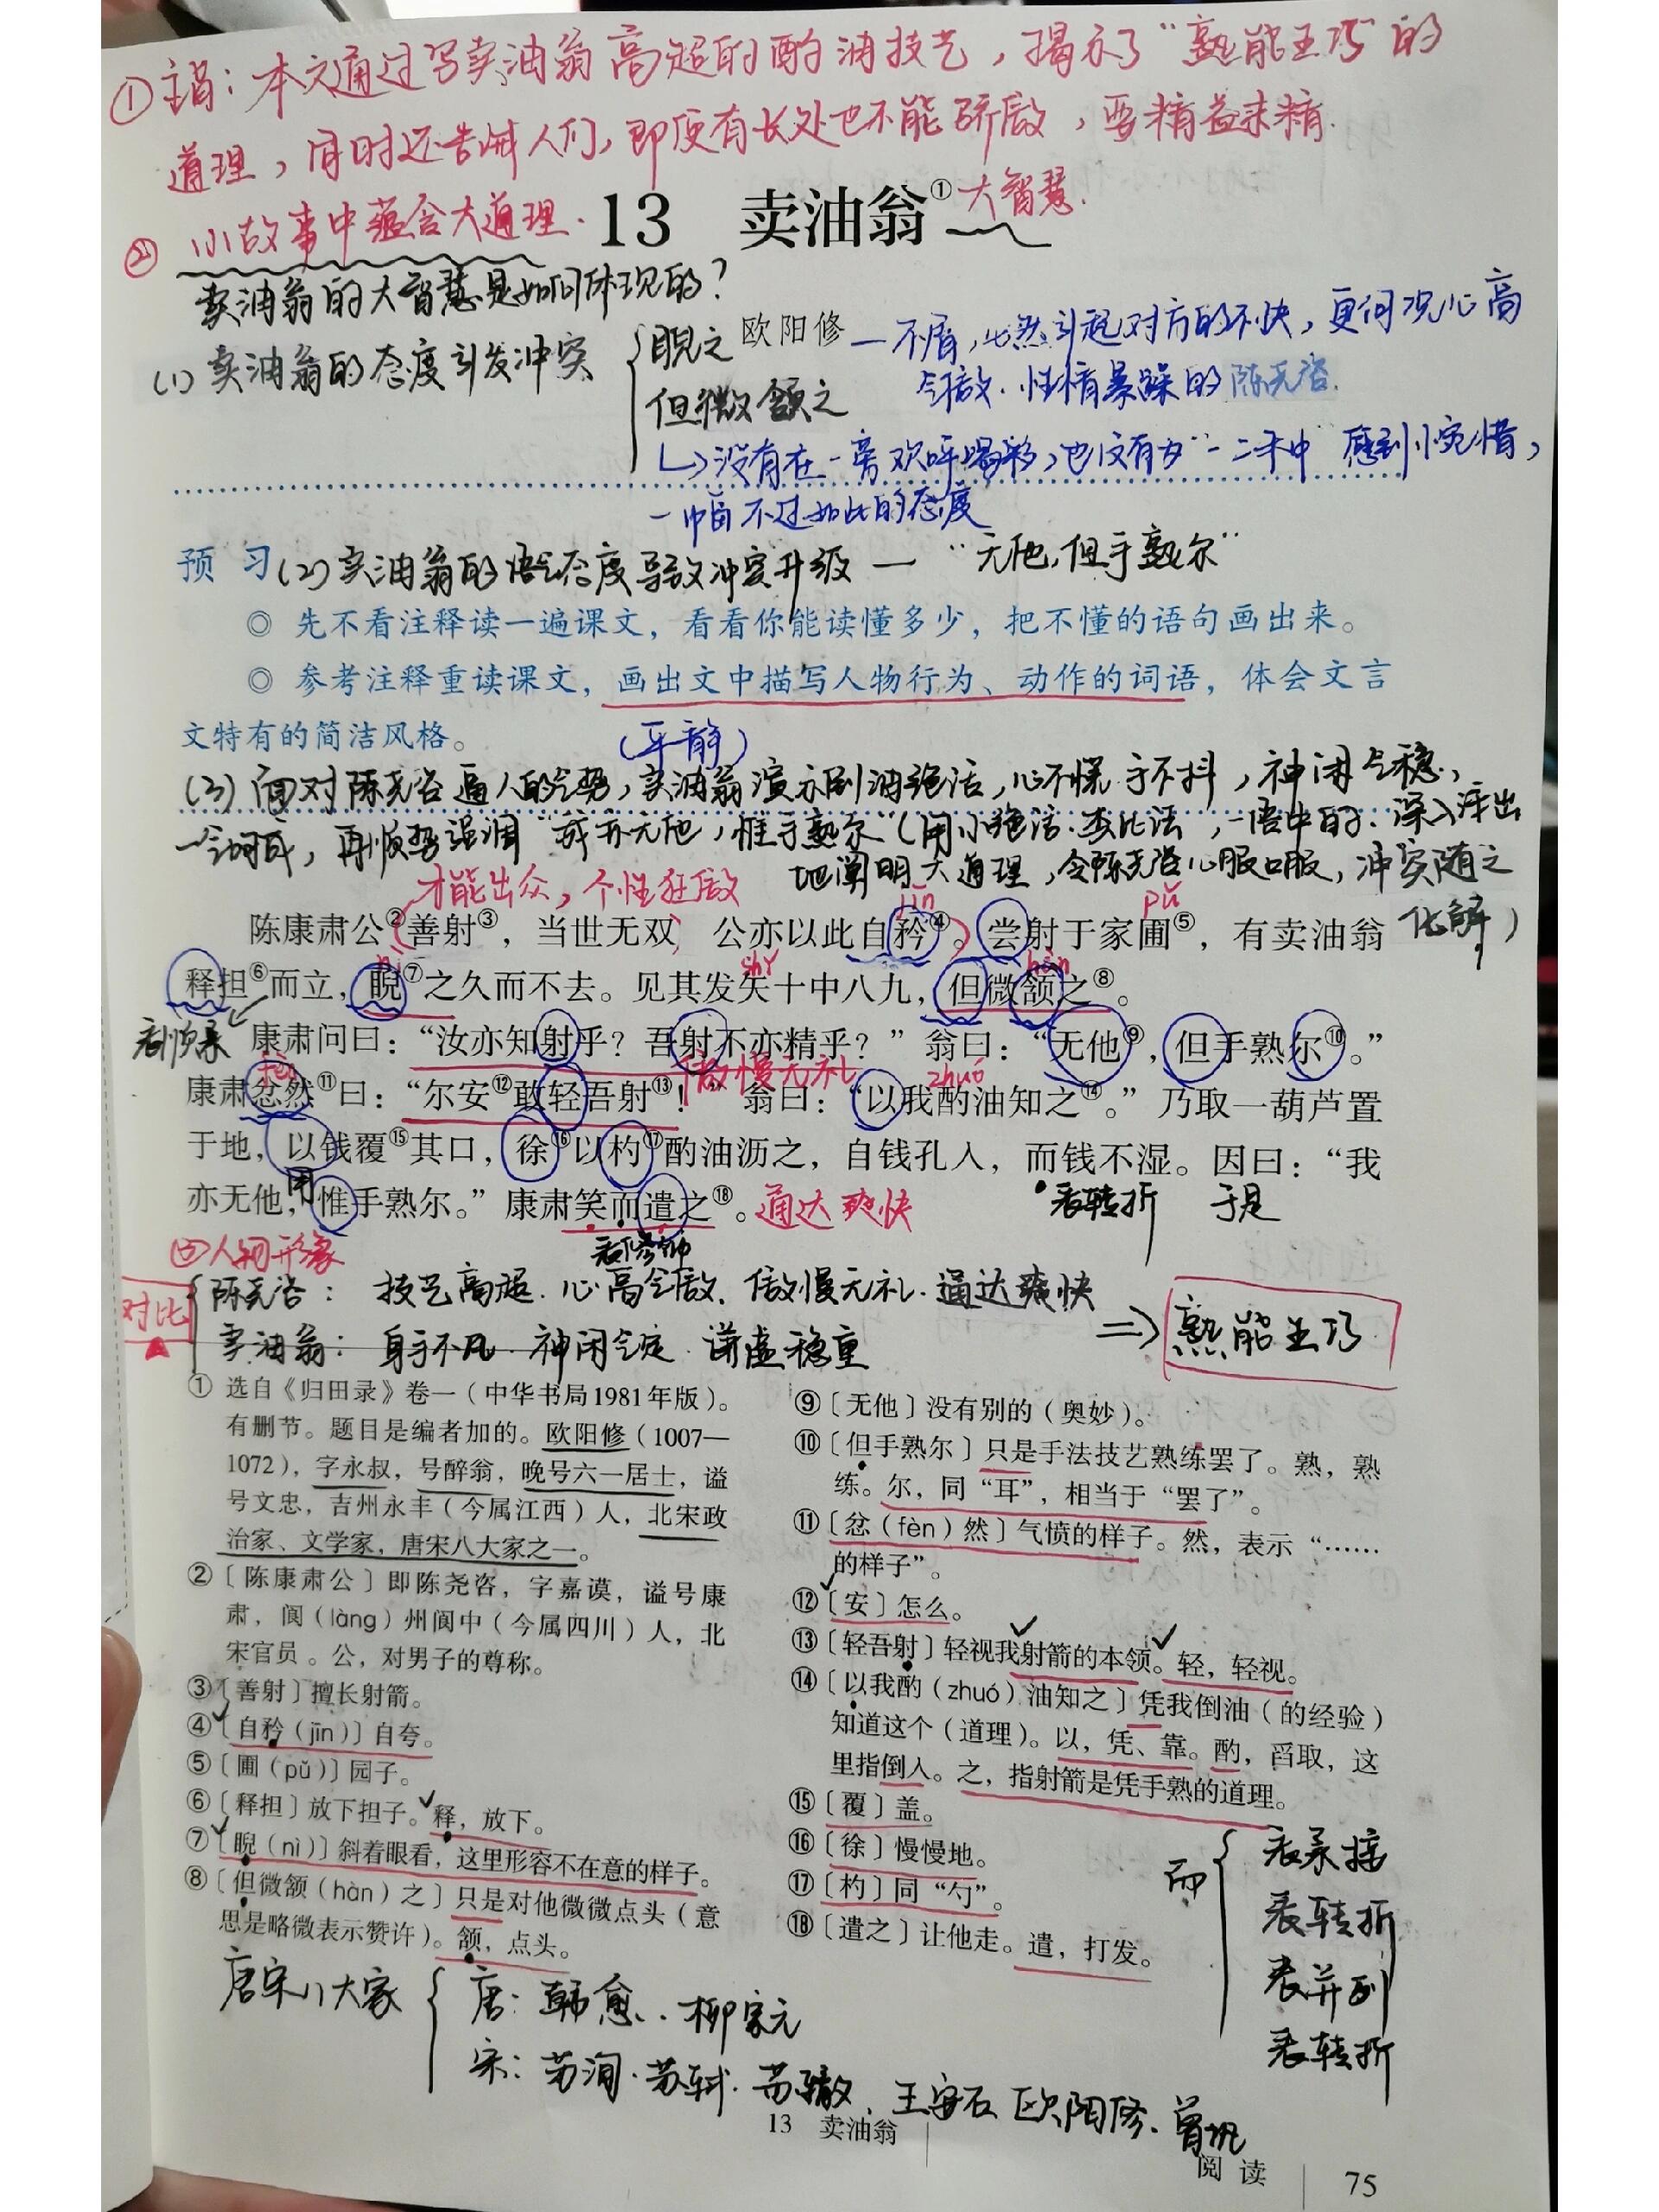 ①主旨：本文通过写卖油翁高超的酌油技艺，揭示了“熟能生巧”的
道理，同时还告诫人们，即便有长处也不能骄傲，要精益求精.
② 小故事中蕴含大道理.
13 卖油翁①
大智慧.
卖油翁的大智慧是如何体现的？
(1) 卖油翁的态度引发冲突
睨之
欧阳修
—不屑，必然引起对方的不快，更何况心高
气傲.性情暴躁的陈尧咨.
但微颔之
↳没有在一旁欢呼喝彩，也没有为“一二未中”感到惋惜，
一幅不过如此的态度
预 习
(2) 卖油翁的语气态度导致冲突升级 — “无他，但手熟尔”
◎ 先不看注释读一遍课文，看看你能读懂多少，把不懂的语句画出来。
◎ 参考注释重读课文，画出文中描写人物行为、动作的词语，体会文言
文特有的简洁风格。
(平静)
(3) 面对陈尧咨逼人的气势，卖油翁演示倒油绝活，心不慌手不抖，神闲气稳、
一气呵成，再顺势强调“我亦无他，惟手熟尔”(用小绝活.类比法，一语中的、深入浅出
地阐明大道理，令陈尧咨心服口服，冲突随之
化解)
才能出众，个性狂傲
jīn
pǔ
陈康肃公②善射③，当世无双，公亦以此自矜④。尝射于家圃⑤，有卖油翁
nì
shǐ
hàn
释担⑥而立，睨⑦之久而不去。见其发矢十中八九，但微颔之⑧。
表顺承
康肃问曰：“汝亦知射乎？吾射不亦精乎？”翁曰：“无他⑨，但手熟尔⑩。”
fèn
傲慢无礼
zhuó
康肃忿然⑪曰：“尔安⑫敢轻吾射⑬！”翁曰：“以我酌油知之⑭。”乃取一葫芦置
于地，以钱覆⑮其口，徐⑯以杓⑰酌油沥之，自钱孔入，而钱不湿。因曰：“我
用
表转折
于是
亦无他，惟手熟尔。”康肃笑而遣之⑱。
通达爽快
表修饰
㈢人物形象
对比
陈尧咨：技艺高超.心高气傲.傲慢无礼.通达爽快
卖油翁：身手不凡.神闲气定.谦虚稳重
⇒ 熟能生巧
① 选自《归田录》卷一（中华书局1981年版）。
有删节。题目是编者加的。欧阳修（1007—
1072），字永叔，号醉翁，晚号六一居士，谥
号文忠，吉州永丰（今属江西）人，北宋政
治家、文学家，唐宋八大家之一。
②〔陈康肃公〕即陈尧咨，字嘉谟，谥号康
肃，阆（làng）州阆中（今属四川）人，北
宋官员。公，对男子的尊称。
③〔善射〕擅长射箭。
④〔自矜（jīn）〕自夸。
⑤〔圃（pǔ）〕园子。
⑥〔释担〕放下担子。释，放下。
⑦〔睨（nì）〕斜着眼看，这里形容不在意的样子。
⑧〔但微颔（hàn）之〕只是对他微微点头（意
思是略微表示赞许）。颔，点头。
⑨〔无他〕没有别的（奥妙）。
⑩〔但手熟尔〕只是手法技艺熟练罢了。熟，熟
练。尔，同“耳”，相当于“罢了”。
⑪〔忿（fèn）然〕气愤的样子。然，表示“……
的样子”。
⑫〔安〕怎么。
⑬〔轻吾射〕轻视我射箭的本领。轻，轻视。
⑭〔以我酌（zhuó）油知之〕凭我倒油（的经验）
知道这个（道理）。以，凭、靠。酌，舀取，这
里指倒入。之，指射箭是凭手熟的道理。
⑮〔覆〕盖。
⑯〔徐〕慢慢地。
⑰〔杓〕同“勺”。
⑱〔遣之〕让他走。遣，打发。
而
表承接
表转折
表并列
表转折
唐宋八大家
唐：韩愈..柳宗元
宋：苏洵.苏轼.苏辙.王安石 欧阳修.曾巩
13 卖油翁
阅 读
75